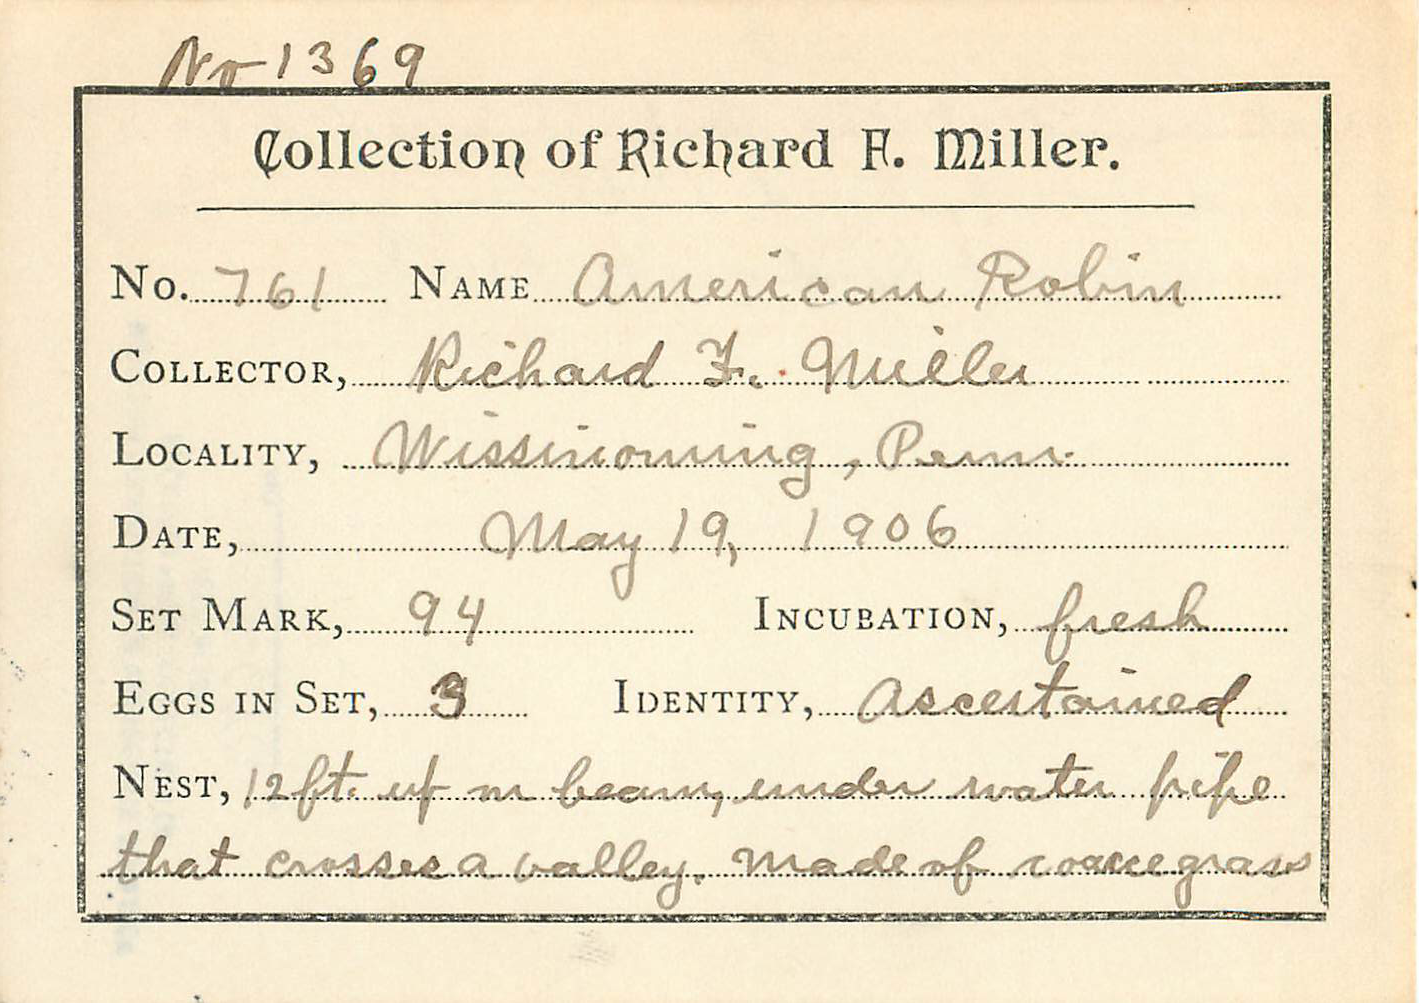 No 1369
Collection of Richard F. Miller.
No. 761 Name American Robin
Collector, Richard F. Miller
Locality, Wissinoming, Penn.
Date, May 19, 1906
Set Mark, 94 Incubation, fresh
Eggs in Set, 3 Identity, Ascertained
Nest, 12 ft. up on beam, under water pipe
that crosses a valley. Made of coarse grass